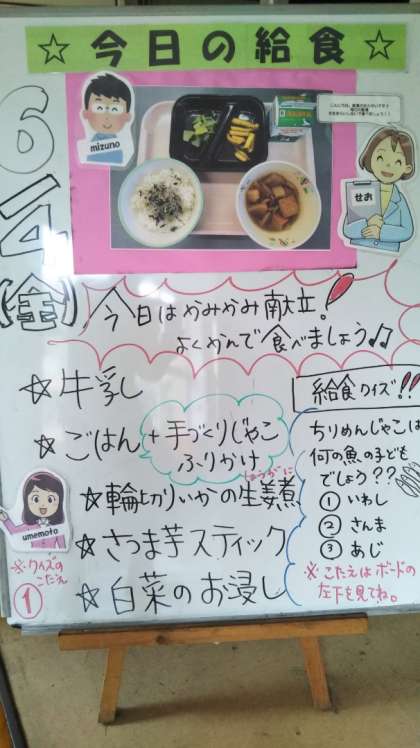 ☆今日の給食☆
mizuno
せお
6/4
(金)
今日はかみかみ献立!
よくかんで食べましょう♫
☆牛乳
☆ごはん+手づくりじゃこ
ふりかけ
しょうがに
☆輪切りいかの生姜煮
☆さつま芋スティック
☆白菜のお浸し
給食クイズ!!
ちりめんじゃこは
何の魚の子ども
でしょう??
①いわし
②さんま
③あじ
※こたえはボードの
左下を見てね。
umemoto
※クイズの
こたえ
①